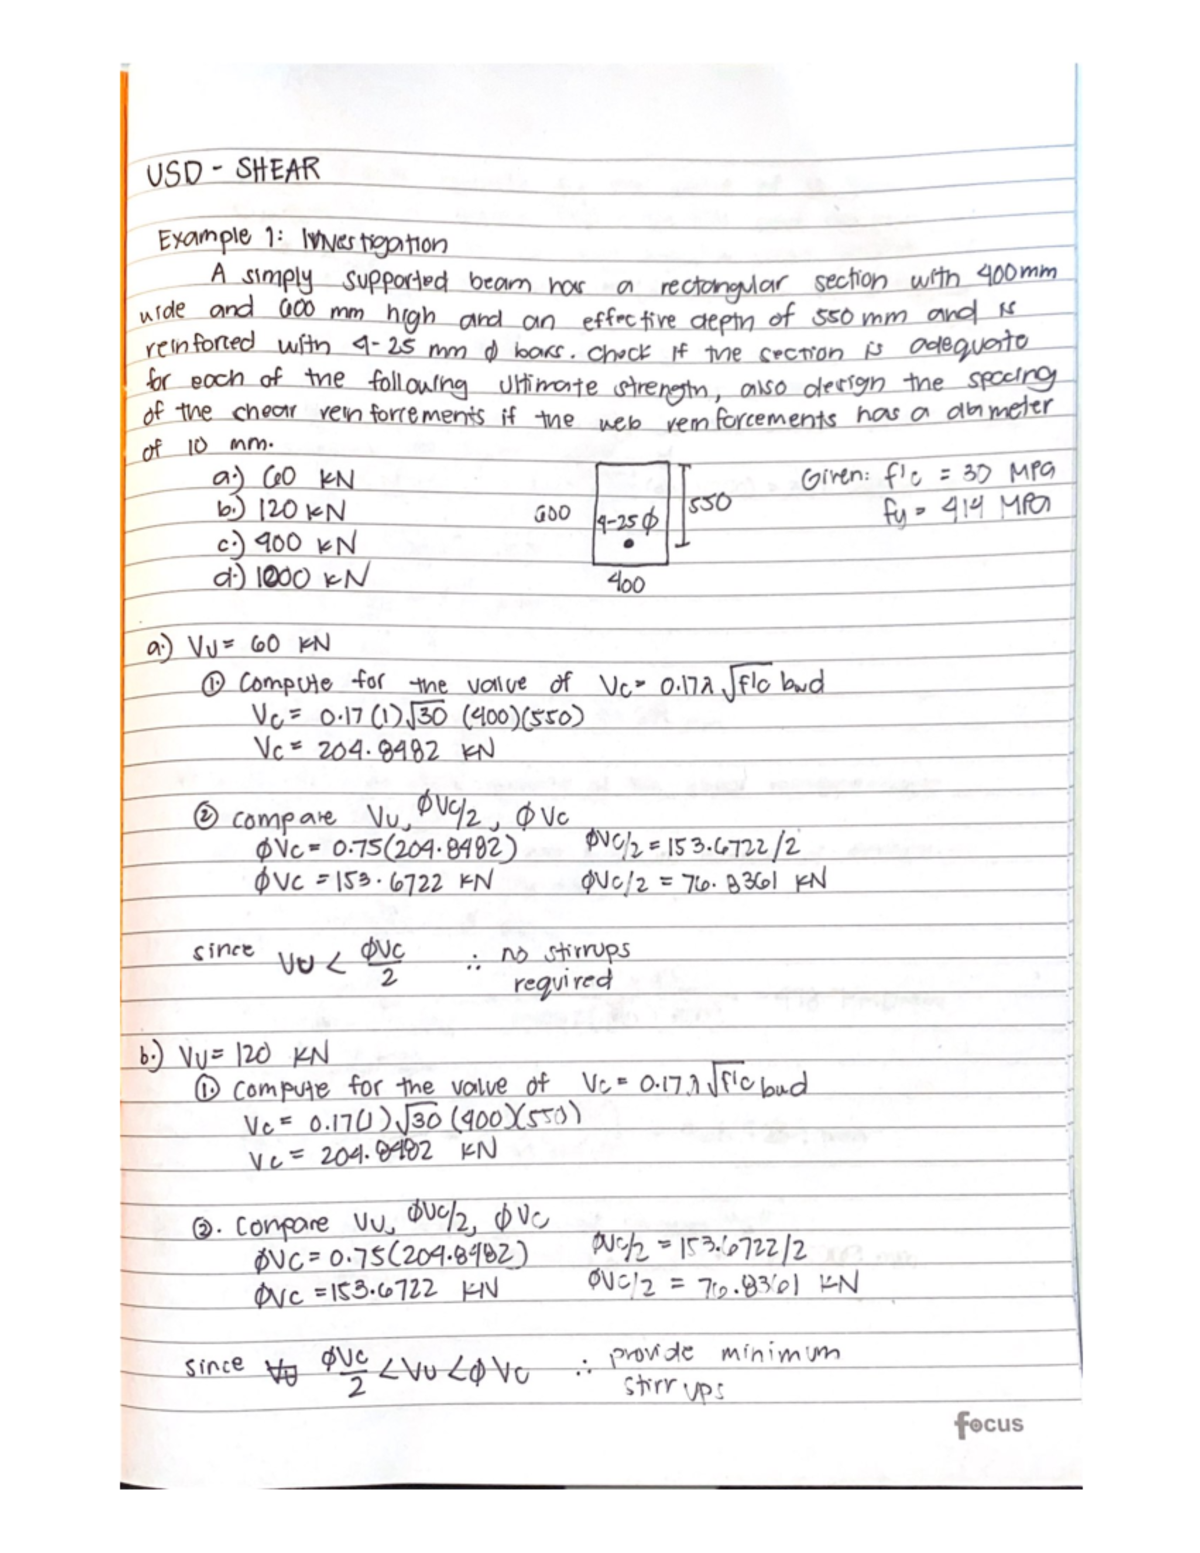 USD - SHEAR
Example 1: Investigation
A simply supported beam has a rectangular section with 400mm
wide and 600 mm high and an effective depth of 550 mm and is
reinforced with 4-25 mm ϕ bars. Check if the section is adequate
for each of the following ultimate strength, also design the spacing
of the shear reinforcements if the web reinforcements has a diameter
of 10 mm.
a.) 60 KN
b.) 120 KN
c.) 400 KN
d.) 1000 KN
600
4-25 ϕ
550
400
Given: f'c = 30 MPa
fy = 414 MPa
a.) Vu = 60 KN
① Compute for the value of Vc = 0.17λ√f'c bwd
Vc = 0.17 (1)√30 (400)(550)
Vc = 204.8482 KN
② compare Vu, ϕVc/2, ϕVc
ϕVc = 0.75(204.8482) ϕVc/2 = 153.6722/2
ϕVc = 153.6722 KN ϕVc/2 = 76.8361 KN
since Vu < ϕVc/2 ∴ no stirrups
required
b.) Vu = 120 KN
① Compute for the value of Vc = 0.17λ√f'c bwd
Vc = 0.17(1)√30 (400)(550)
Vc = 204.8482 KN
②. Compare Vu, ϕVc/2, ϕVc
ϕVc = 0.75(204.8482) ϕVc/2 = 153.6722/2
ϕVc = 153.6722 KN ϕVc/2 = 76.8361 KN
since Vu ϕVc/2 < Vu < ϕVc ∴ provide minimum
stirrups
focus